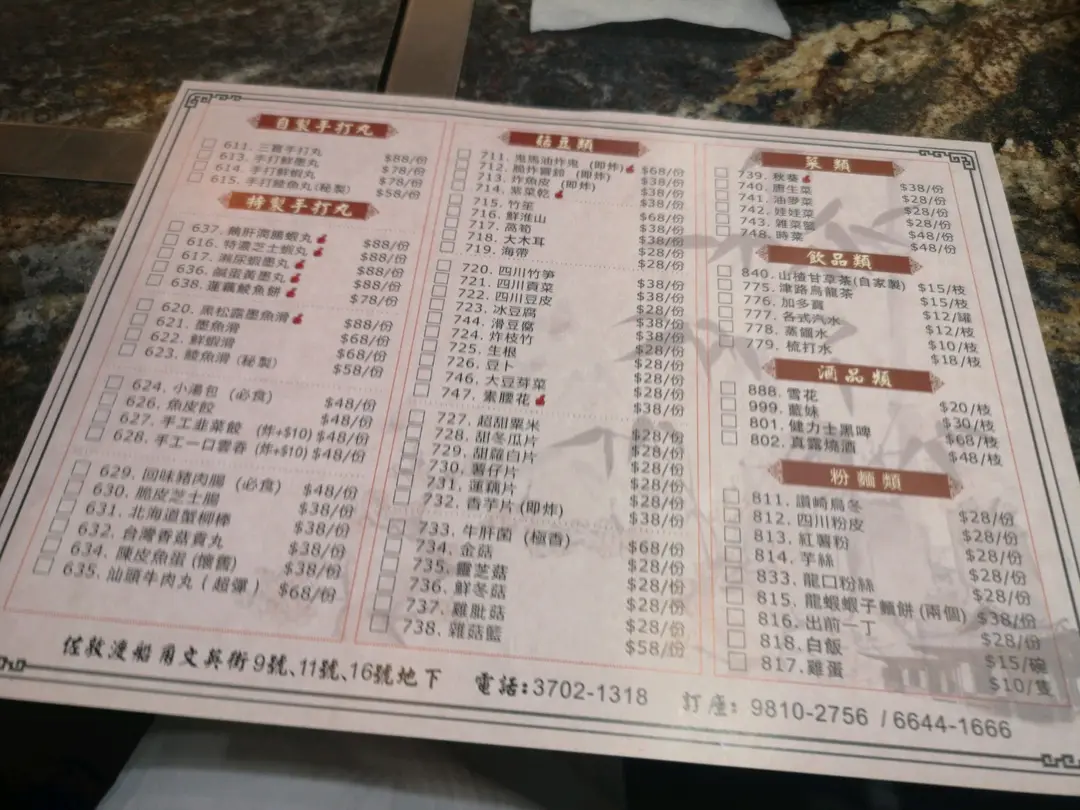 自製手打丸
611. 三寶手打丸 $88/份
613. 手打鮮墨丸 $78/份
614. 手打鮮蝦丸 $78/份
615. 手打鯪魚丸(秘製) $58/份
特製手打丸
637. 鵝肝潤腸蝦丸 $88/份
616. 特濃芝士蝦丸 $88/份
617. 瀨尿蝦墨丸 $88/份
636. 鹹蛋黃墨丸 $88/份
638. 蓮藕鯪魚餅 $78/份
620. 黑松露墨魚滑 $88/份
621. 墨魚滑 $68/份
622. 鮮蝦滑 $68/份
623. 鯪魚滑 (秘製) $58/份
624. 小湯包 (必食) $48/份
626. 魚皮餃 $48/份
627. 手工韭菜餃 (炸+$10) $48/份
628. 手工一口雲吞 (炸+$10) $48/份
629. 回味豬肉腸 (必食) $48/份
630. 脆皮芝士腸 $38/份
631. 北海道蟹柳棒 $38/份
632. 台灣香菇貢丸 $38/份
634. 陳皮魚蛋 (懷舊) $38/份
635. 汕頭牛肉丸 (超彈) $68/份
菇豆類
711. 鬼馬油炸鬼 (即炸) $68/份
712. 脆炸響鈴 (即炸) $38/份
713. 炸魚皮 (即炸) $38/份
714. 紫菜乾 $28/份
715. 竹笙 $68/份
716. 鮮淮山 $38/份
717. 萵筍 $28/份
718. 大木耳 $28/份
719. 海帶 $28/份
720. 四川竹笋 $38/份
721. 四川貢菜 $38/份
722. 四川豆皮 $38/份
723. 冰豆腐 $28/份
744. 滑豆腐 $38/份
724. 炸枝竹 $28/份
725. 生根 $28/份
726. 豆卜 $28/份
746. 大豆芽菜 $28/份
747. 素腰花 $38/份
727. 超甜粟米 $28/份
728. 甜冬瓜片 $28/份
729. 甜蘿白片 $28/份
730. 薯仔片 $28/份
731. 蓮藕片 $28/份
732. 香芋片 (即炸) $38/份
733. 牛肝菌 (極香) $68/份
734. 金菇 $28/份
735. 靈芝菇 $28/份
736. 鮮冬菇 $28/份
737. 雞肶菇 $28/份
738. 雜菇籃 $58/份
菜類
739. 秋葵 $38/份
740. 唐生菜 $28/份
741. 油麥菜 $28/份
742. 娃娃菜 $28/份
743. 雜菜籃 $48/份
748. 時菜 $48/份
飲品類
840. 山楂甘草茶(自家製) $15/枝
775. 津路烏龍茶 $15/枝
776. 加多寶 $12/罐
777. 各式汽水 $12/枝
778. 蒸餾水 $10/枝
779. 梳打水 $18/枝
酒品類
888. 雪花 $20/枝
999. 藍妹 $30/枝
801. 健力士黑啤 $68/枝
802. 真露燒酒 $48/枝
粉麵類
811. 讚崎烏冬 $28/份
812. 四川粉皮 $28/份
813. 紅薯粉 $28/份
814. 芋絲 $28/份
833. 龍口粉絲 $28/份
815. 龍蝦蝦子麵餅 (兩個) $38/份
816. 出前一丁 $28/份
818. 白飯 $15/碗
817. 雞蛋 $10/隻
佐敦渡船角文英街9號、11號、16號地下 電話:3702-1318 訂座: 9810-2756 / 6644-1666